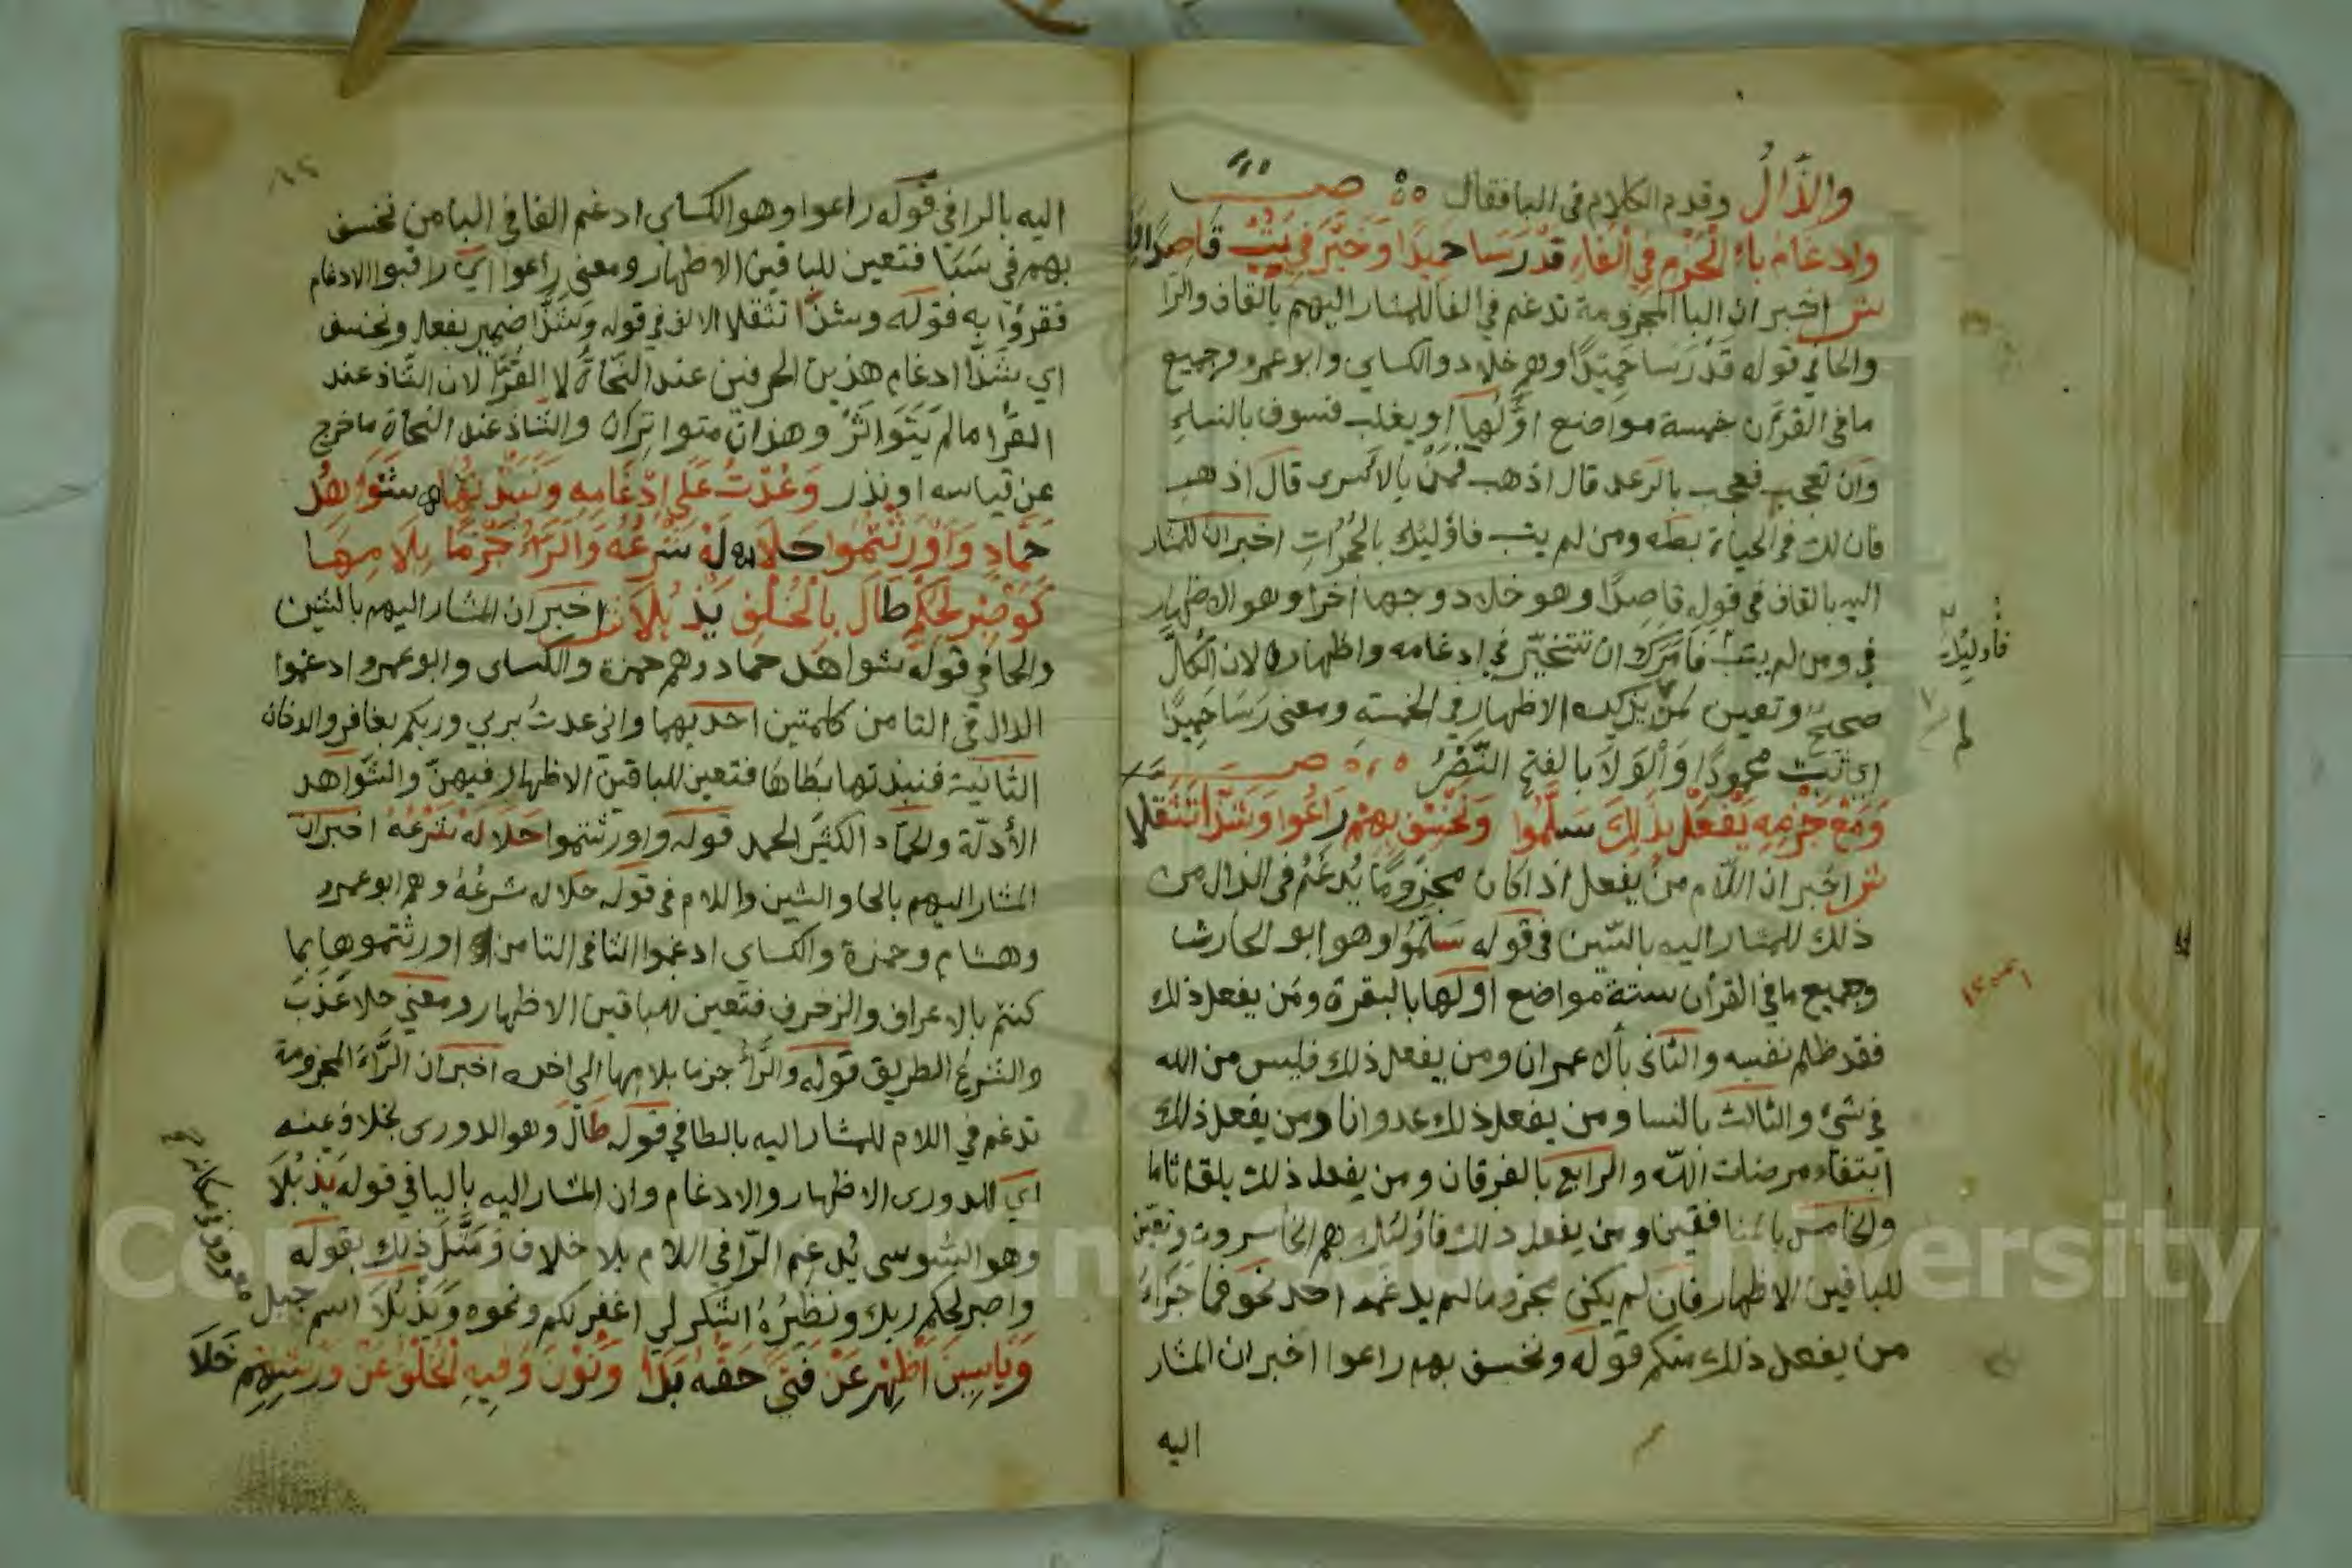 والذَّالُ وقدم الكلام في البا فقال ٥٥ صـــ
وادغام باء الجزم في الفاء قد رسا حميدا وخيّر في يتب قاصدا
ش اخبر ان البا المجزومة تدغم في الفا للمشار اليهم بالقاف والرا
والحا في قوله قد رسا حميدًا وهم خلاد والكساي وابو عمرو وجميع
ما في القرآن خمسة مواضع اولها او يغلب فسوف بالنساء
وان تعجب فعجب بالرعد قال اذهب فمن بالاسرى قال اذهب
فان لك في الحياة بطه ومن لم يتب فاوليك بالحجرات اخبر ان للمشار
اليه بالقاف في قوله قاصِدًا وهو خلاد وجها اخرا وهو الاظهار
في ومن لم يتب فامرك ان تتخيّر في ادغامه واظهاره لان الكلّ
صحيح وتعين لمن لم يذكره الاظهار في الخمسة ومعنى رسا حميدًا
اي ثبت محمودًا والولا بالفتح النّصْرُ ٥،٥ صـــ
وَمَعْ جَزْمِهِ يَفْعَلْ بِذَلِكَ سَلَّمُوا وَنَخْسِفْ بِهِمْ رَاعَوْا وَشَذَّا تَثَقُّلا
ش اخبر ان اللام من يفعل اذا كان مجزومًا يُدغَمُ في الذال من
ذلك للمشار اليه بالسّين في قوله سَلَّمُوا وهو ابو الحارث
وجميع ما في القرأن ستة مواضع اولها بالبقرة ومن يفعل ذلك
فقد ظلم نفسه والثاني بأل عمران ومن يفعل ذلك فليس من الله
في شيء والثالث بالنسا ومن يفعل ذلك عدوانا ومن يفعل ذلك
ابتغاء مرضات الله والرابع بالفرقان ومن يفعل ذلك يلق اثاما
والخامس بالمنافقين ومن يفعل ذلك فأولئك هم الخاسرون وتعيّن
للباقين الاظهار فان لم يكن مجزوما لم يدغمه احد نحو فما جزاء
من يفعل ذلك منكم قوله ونخسف بهم راعوا اخبر ان المشار
اليه
فأوليك
لم
اليه بالرا في قوله راعوا وهو الكساي ادغم الفا في البا من نخسف
بهم في سَبَا فتعين للباقين الاظهار ومعنى راعوا اي راقبوا الادغام
فقرؤا به فقوله وشذّا تثقلا الالف في قوله وشذّا ضمير يفعل ونخسف
اي شَذّا ادغام هذين الحرفين عند النّحاة لا القُرّا لان الشاذ عند
القرّا ما لم يَتَوَاتَرْ وهذان متواتران والشاذ عند النحاة ما خرج
عن قياسه او ينذر وَعُذْتُ عَلَى اِدْغَامِهِ وَنَبَذْتُهَا شَوَاهِدُ
حَمَّادٍ وَاُورِثْتُمُوا حَلَا لَهُ شَرْعُهُ وَالرَّاءُ جَزْمًا بِلَامِهَا
كَوَاصْبِرْ لِحُكْمِ طَالَ بِالْخُلْفِ يَذْبُلَا ش اخبر ان المشار اليهم بالشين
والحا في قوله شواهد حماد وهم حمزة والكساى وابو عمرو ادغموا
الذال في التا من كلمتين احديهما واني عذت بربي وربكم بغافر والدخان
الثانية فنبذتها بطاها فتعين للباقين الاظهار فيهنّ والشّواهد
الأدلّة والحمّاد الكثير الحمد قوله واورثتموا حلا له شرعه اخبر ان
المشار اليهم بالحا والشين واللام في قوله حلا له شرعُهُ وهم ابو عمرو
وهشام وحمزة والكساي ادغموا الثا في التا من اورثتموها بما
كنتم بالاعراف والزخرف فتعين للباقين الاظهار ومعني حلا عَذُبَ
والشرع الطريق قوله والرّأ جزما بلامها الى اخره اخبر ان الرّاء المجزومة
تدغم في اللام للمشار اليه بالطا في قوله طَالَ وهو الدورى بخلاف عنه
اي للدورى الاظهار والادغام وان المشار اليه باليا في قوله يَذْبُلَا
وهو السّوسى يُدغم الرّا في اللام بلا خلاف وَمَثَّلَ ذلك بقوله
واصبر لحكم ربك ونظيره اشكر لي اغفر لكم ونحوه ويَذْبُلَا اسم جبل
وَيَاسِينَ اَظْهِرْ عَنْ فَتًى حَقُّهُ بَدَا وَنُونَ وَفِيهِ الْخُلْفُ عَنْ وَرْشِهِمْ خَلَا
Copyright © King Saud University